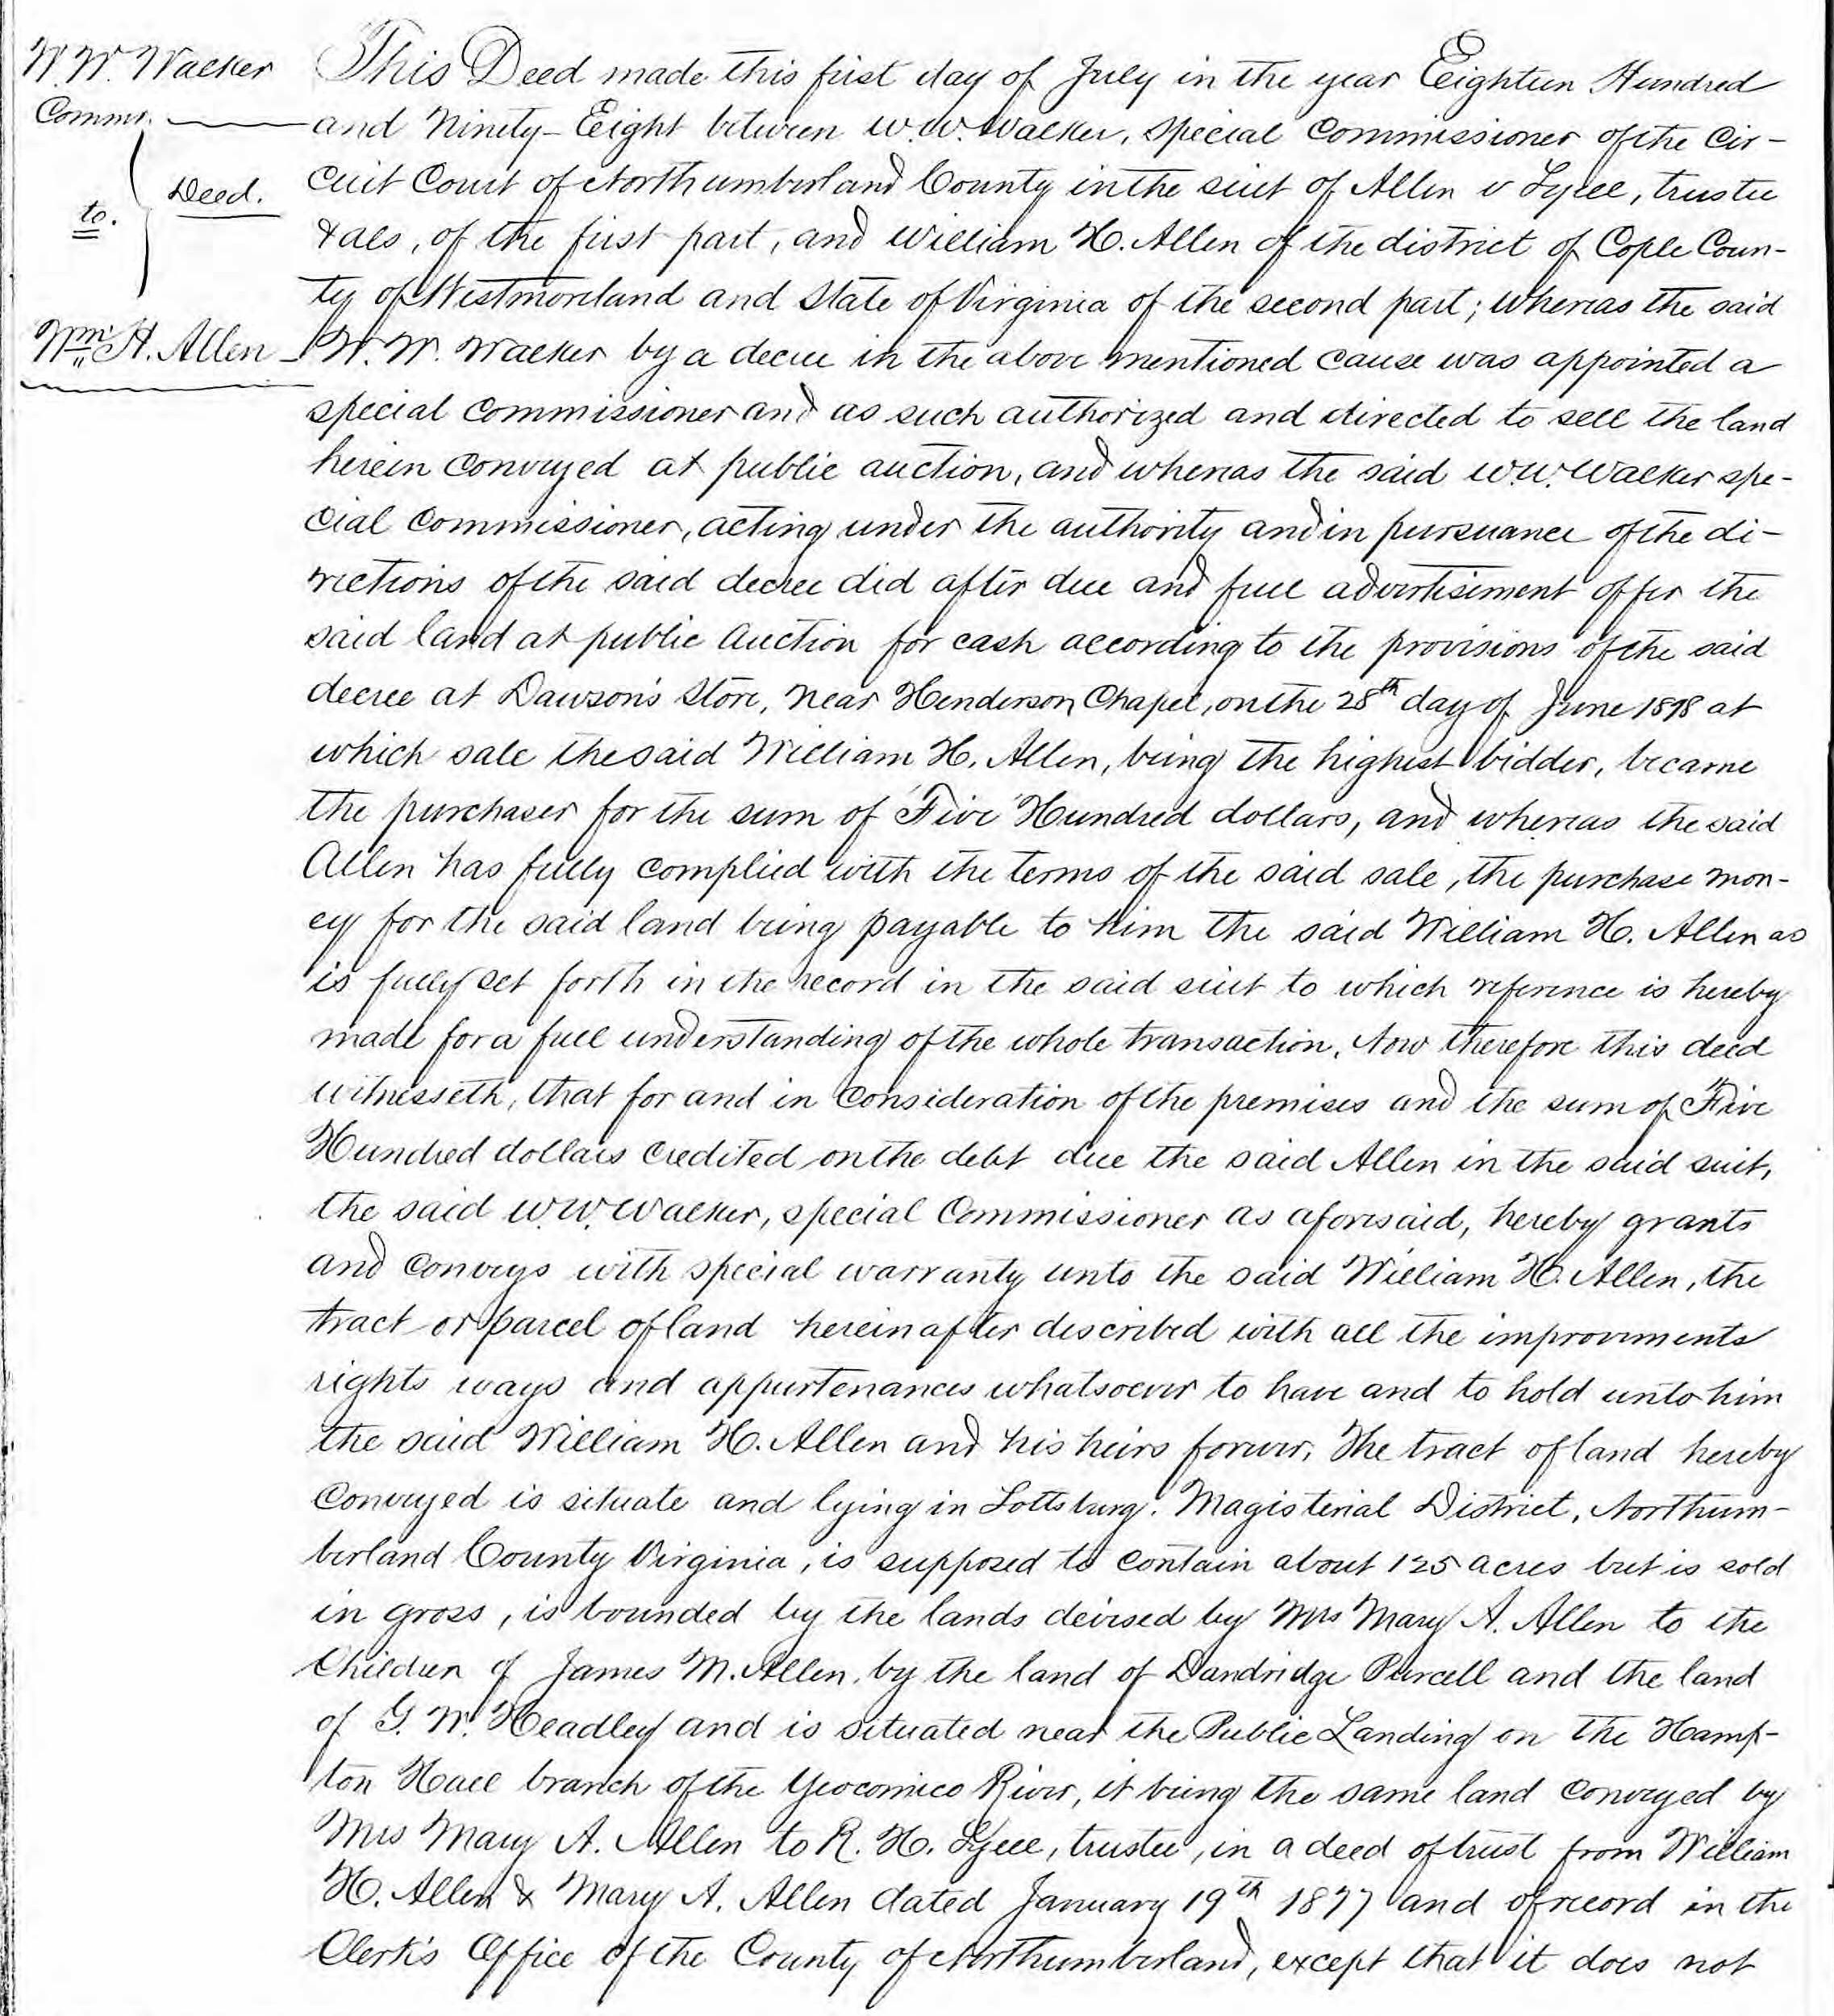 W. W. Walker
Commr.
to.
Deed.
Wm. H. Allen
This Deed made this first day of July in the year Eighteen Hundred
and Ninety-Eight between W. W. Walker, Special Commissioner of the Cir-
cuit Court of Northumberland County in the suit of Allen v Lyell, trustee
& als, of the first part, and William H. Allen of the district of Cople Coun-
ty of Westmoreland and State of Virginia of the second part; whereas the said
W. W. Walker by a decree in the above mentioned cause was appointed a
special commissioner and as such authorized and directed to sell the land
herein conveyed at public auction, and whereas the said W. W. Walker spe-
cial commissioner, acting under the authority and in pursuance of the di-
rections of the said decree did after due and full advertisement offer the
said land at public auction for cash according to the provisions of the said
decree at Dawson's Store, near Henderson Chapel, on the 28th day of June 1898 at
which sale the said William H. Allen, being the highest bidder, became
the purchaser for the sum of Five Hundred dollars, and whereas the said
Allen has fully complied with the terms of the said sale, the purchase mon-
ey for the said land being payable to him the said William H. Allen as
is fully set forth in the record in the said suit to which reference is hereby
made for a full understanding of the whole transaction, Now therefore this deed
witnesseth, that for and in consideration of the premises and the sum of Five
Hundred dollars credited on the debt due the said Allen in the said suit,
the said W. W. Walker, special Commissioner as aforesaid, hereby grants
and conveys with special warranty unto the said William H. Allen, the
tract or parcel of land hereinafter described with all the improvements
rights ways and appurtenances whatsoever to have and to hold unto him
the said William H. Allen and his heirs forever. The tract of land hereby
conveyed is situate and lying in Lottsburg. Magisterial District, Northum-
berland County Virginia, is supposed to contain about 125 acres but is sold
in gross, is bounded by the lands devised by Mrs Mary A. Allen to the
Children of James M. Allen, by the land of Dandridge Purcell and the land
of G. W. Headley and is situated near the Public Landing on the Hamp-
ton Hall branch of the Yeocomico River, it being the same land conveyed by
Mrs Mary A. Allen to R. H. Lyell, trustee, in a deed of trust from William
H. Allen & Mary A. Allen dated January 19th 1877 and of record in the
Clerk's Office of the County of Northumberland, except that it does not